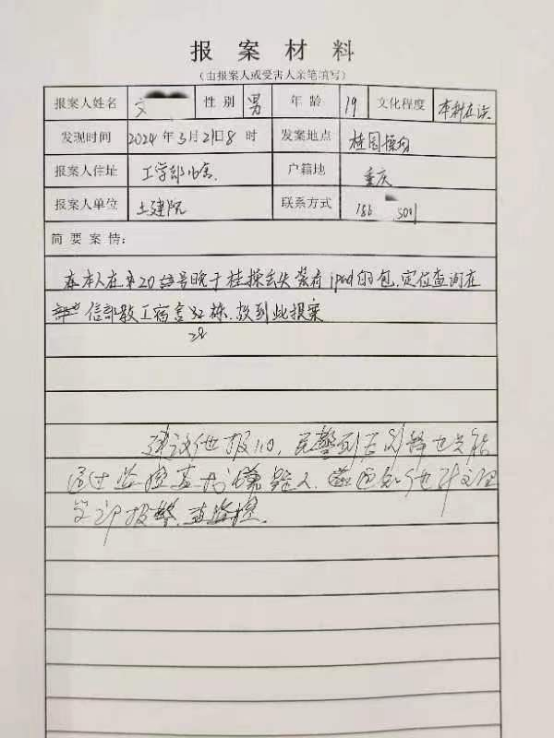 报案材料
（由报案人或受害人亲笔填写）
报案人姓名 文 性别 男 年龄 19 文化程度 本科在读
发现时间 2024年3月21日8时 发案地点 桂园操场
报案人住址 工学部 户籍地 重庆
报案人单位 土建院 联系方式 186
简要案情：
本人在 20 号晚于桂操丢失装有ipad的包，定位查询在
信部教工宿舍32栋，故到此报案
28
建议他报110，民警到
通过监控查找嫌疑人，通知他
立即报警，查监控。